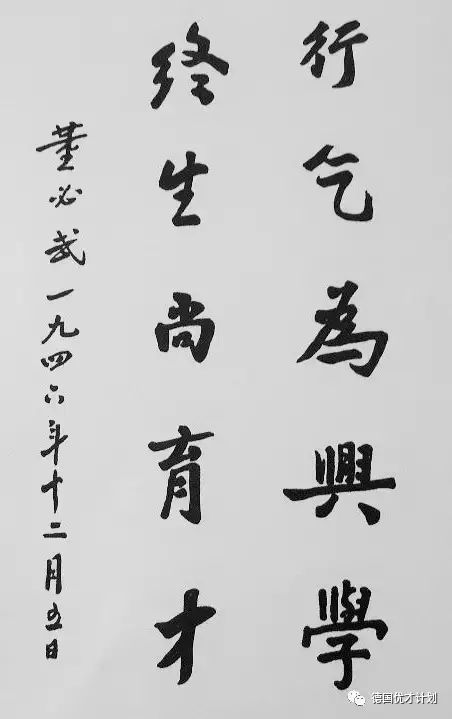 行乞為興學
终生尚育才
董必武一九四六年十二月五日
德国优才计划